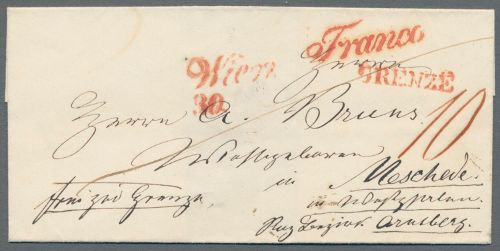 Franco
Wien
GRENZE
30
Herrn
Herrn A. Bruns
10
Wohlgeboren
in Meschede
frei zur Grenze
in Westphalen
Reg Bezirk Arnsberg.